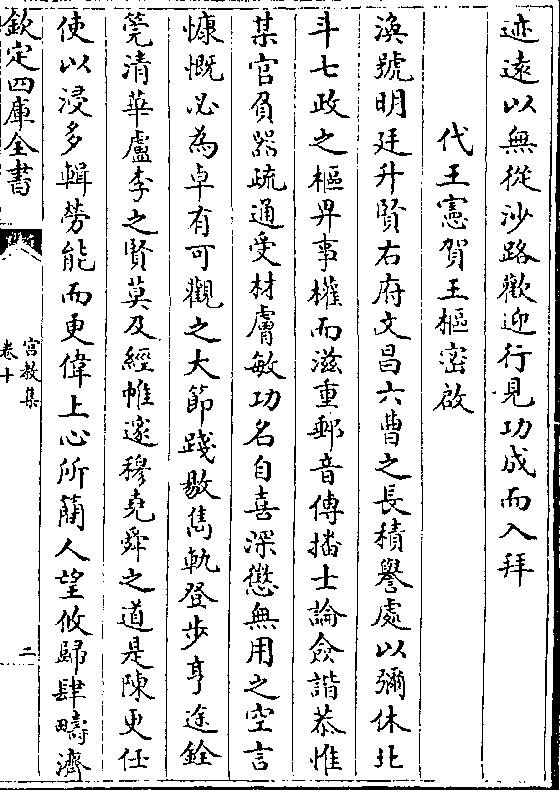 迹遠以無從沙路歡迎行見功成而入拜
代王憲賀王樞密啟
渙號明廷升賢右府文昌六曹之長積譽處以彌休北
斗七政之樞畀事權而滋重郵音傳播士論僉諧恭惟
某官負器疏通受材膚敏功名自喜深懲無用之空言
慷慨必為卓有可觀之大節踐敭雋軌登步亨途銓
筦清華盧李之賢莫及經帷邃穆堯舜之道是陳更任
使以浸多輯勞能而更偉上心所蘭人望攸歸肆疇濟
欽定四庫全書
宫教集
卷十
二